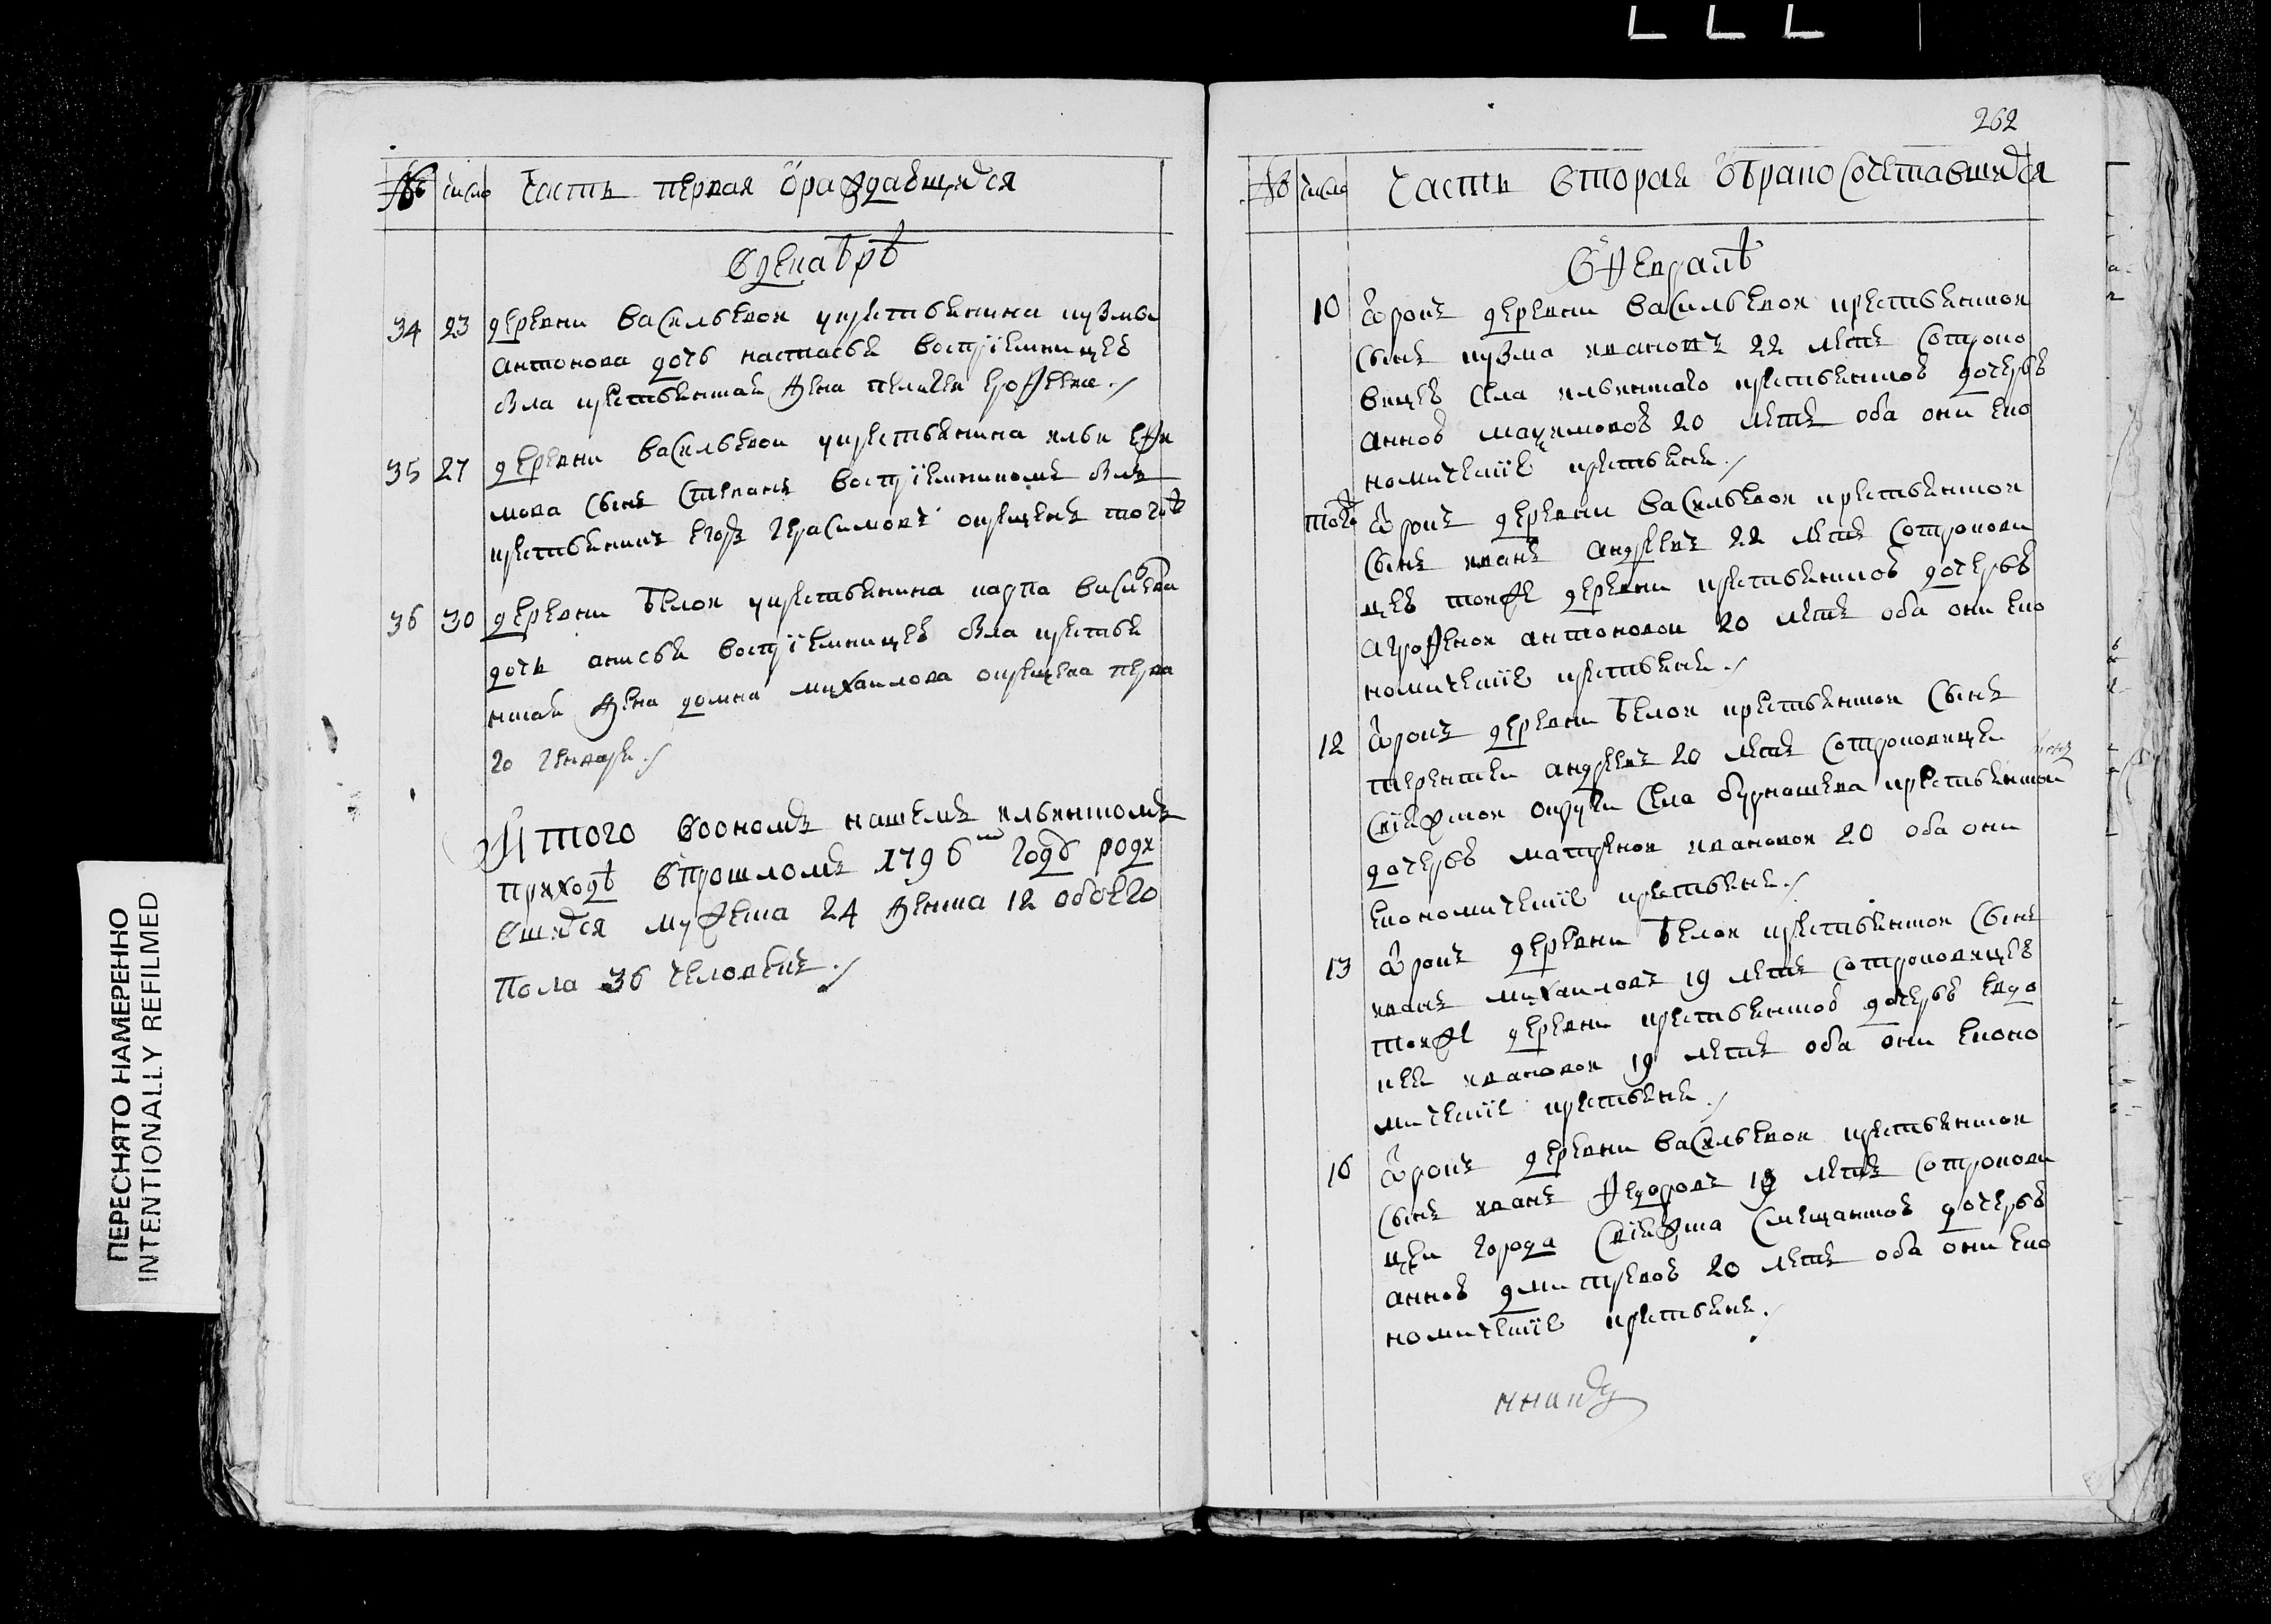 262
№ число Часть первая ораждавщихся
в декабрѣ
34 23 деревни васильевои укрестьянина кузмы
антонова дочь настасья восприемницею
была крестьянская жена пелагея ерофеева ./
35 27 деревни васильевои укрестьянина ильи ефи
мова сынъ степанъ восприемникомъ былъ
крестьянинъ егоръ герасимовъ окрещенъ
36 30 деревни белои укрестьянина карпа василева
дочь анисья восприемницею была крестья
нская жена домна михаилова окрещена перва
20 генваря ./
Итого воономъ нашемъ ильинскомъ
приходѣ впрошломъ 1796 м годѣ роди
вшихся мужеска 24 женска 12 обоего
пола 36 человекъ ./
№ число Часть вторая обракосочетавшихся
в февралѣ
10 отрокъ деревни васильевои крестьянскои
сынъ кузма ивановъ 22 летъ сотроко
вицею села ильинскаго крестьянскою дочерью
анною 20 летъ оба они еко
номические крестьяне ./
тогож отрокъ деревни васильевои крестьянскои
сынъ иванъ андреевъ 22 летъ сотрокови
цею тоиже деревни крестьянскою дочерью
агрофеною антоновои 20 летъ оба они еко
номические крестьяне ./
12 отрокъ деревни белои крестьянскои сынъ
терентеи андреевъ 20 летъ сотроковицеи
свияжскои округи села бурнашева крестьянскои
дочерью матреною ивановои 20 оба они
економические крестьяне ./
13 отрокъ деревни белои крестьянскои сынъ
иванъ михаиловъ 19 летъ сотроковицею
тоиже деревни крестьянскою дочерью евдо
кеи ивановои 19 летъ оба они еконо
мические крестьяне ./
16 отрокъ деревни васильевои крестьянскои
сынъ иванъ федоровъ 19 летъ сотрокови
цеи города свияжска смещанскою дочерью
анною дмитревою 20 летъ оба они еко
номические крестьяне ./
ПЕРЕСНЯТО НАМЕРЕННО
INTENTIONALLY REFILMED